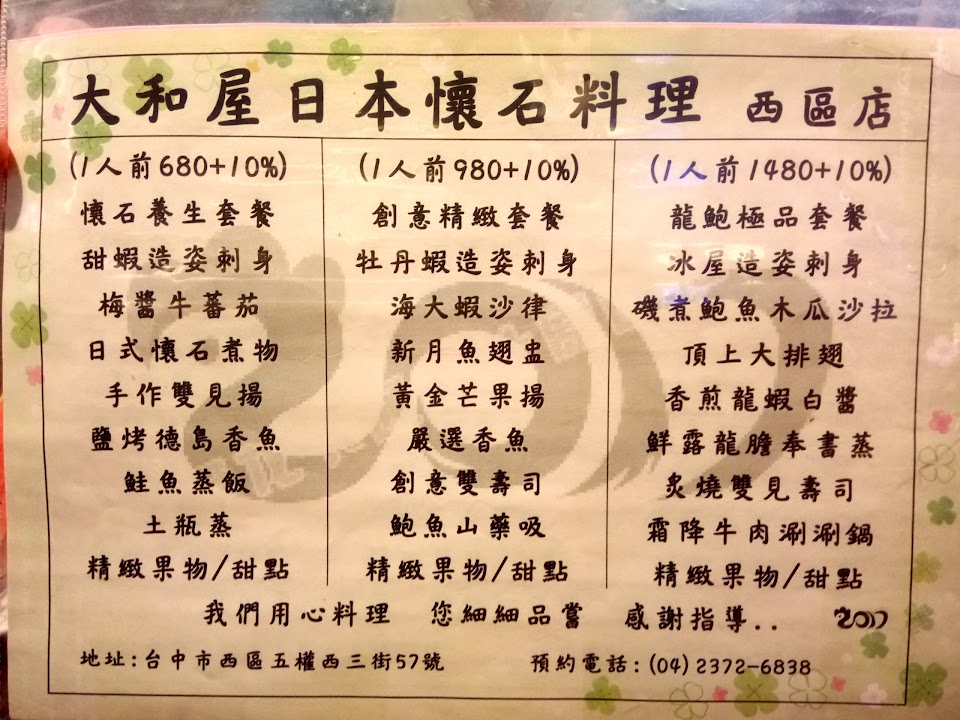 大和屋日本懷石料理 西區店
(1人前680+10%)
懷石養生套餐
甜蝦造姿刺身
梅醬牛蕃茄
日式懷石煮物
手作雙見揚
鹽烤德島香魚
鮭魚蒸飯
土瓶蒸
精緻果物/甜點
(1人前980+10%)
創意精緻套餐
牡丹蝦造姿刺身
海大蝦沙律
新月魚翅盅
黃金芒果揚
嚴選香魚
創意雙壽司
鮑魚山藥吸
精緻果物/甜點
(1人前1480+10%)
龍鮑極品套餐
冰屋造姿刺身
磯煮鮑魚木瓜沙拉
頂上大排翅
香煎龍蝦白醬
鮮露龍膽奉書蒸
炙燒雙見壽司
霜降牛肉涮涮鍋
精緻果物/甜點
我們用心料理 您細細品嘗 感謝指導..
地址:台中市西區五權西三街57號 預約電話:(04)2372-6838